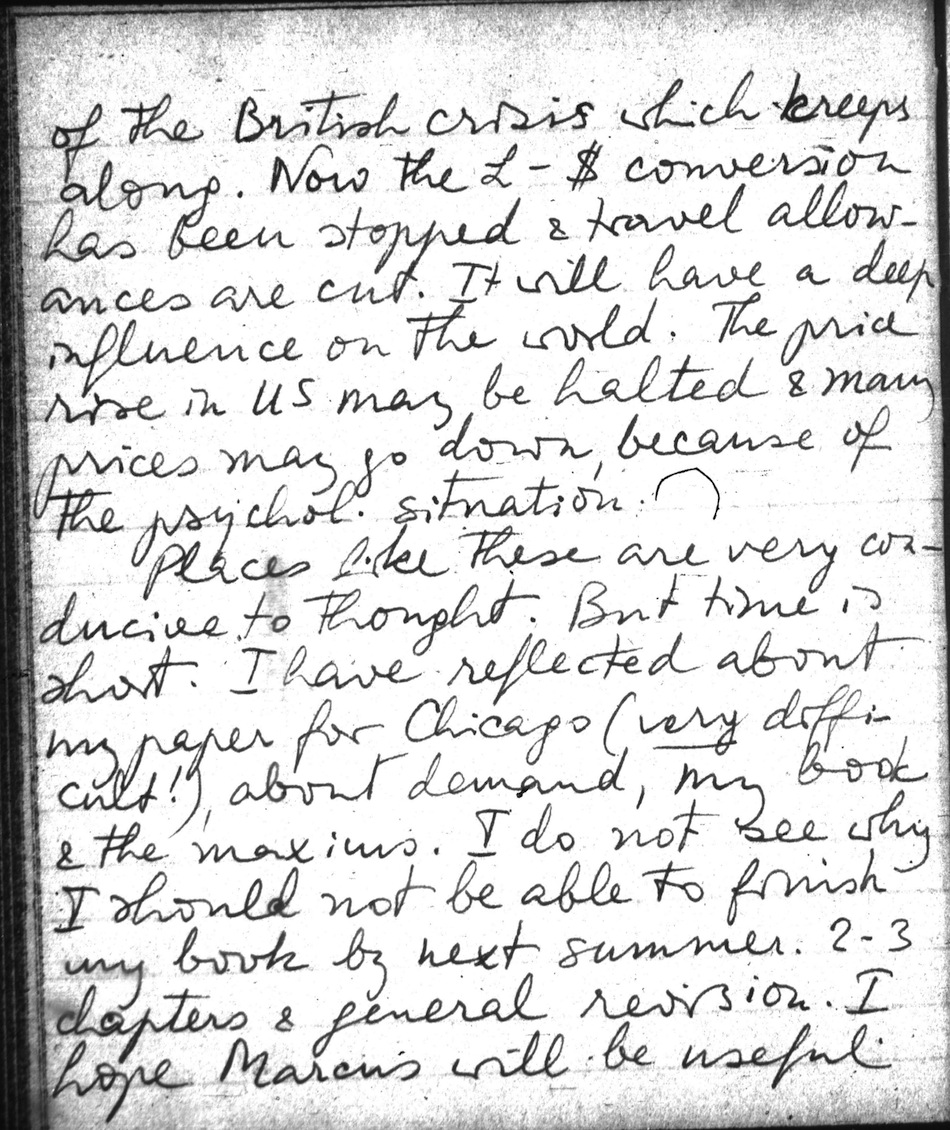 of the British crisis which kreeps
along. Now the £-$ conversion
has been stopped & travel allow-
ances are cut. It will have a deep
influence on the world. The price
rise in US may be halted & many
prices may go down, because of
the psychol. situation.
Places like these are very con-
ducive to thought. But time is
short. I have reflected about
my paper for Chicago (very diffi-
cult!), about demand, my book
& the maxims. I do not see why
I should not be able to finish
my book by next summer. 2-3
chapters & general revision. I
hope Marcus will be useful